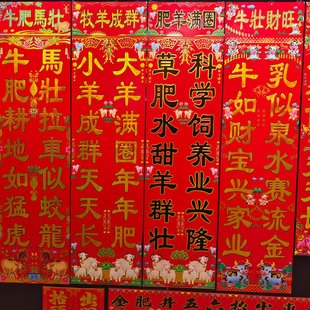 牛肥馬壮
牛肥耕地如猛虎
馬壯拉車似蛟龍
牧羊成群
小羊成群天天长
大羊满圈年年肥
肥羊满圈
草肥水甜羊群壮
科学饲养业兴隆
牛壮財旺
牛如财宝兴家业
乳似泉水赛流金